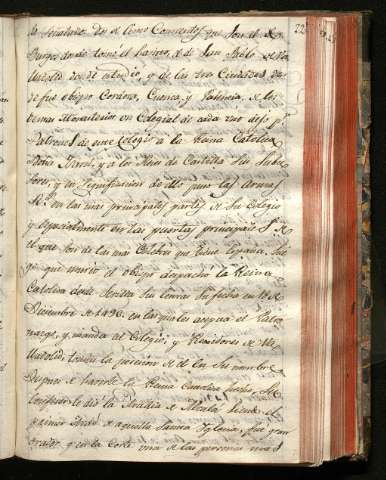 22
señalados dos el Convento que son el de
Burgos donde tomó el havito, y de San Pablo de Va
lladolid donde estudio, y de las tres Ciudades don
de fue obispo Cordova, Cuenca, y Palencia, de los
demas Monasterios un Colegial de cada uno dejo por
Patronos de este Colegio a la Reina Catolica
Doña Ysavel, y a los Reies de Castilla sus subce
sores, y en significacion de ello puso las Armas
Rs. en las mas principales partes de su Colegio
y especialmente en las puertas principales
que son de las mas Celebres que tiene España, lue
go que murio el obispo despacho la Reina
Catolica desde Sevilla sus Cartas su fecha en 19 de
Diciembre de 1496. en las quales acepta el Patro
nazgo, y manda al Colegio, y Rexidores de Va
lladolid, tomen la posesion de el en su nombre
Despues de haverle la Reina Catolica
le dio la Abadia de Alcala siendo el
primer Abad de aquella Santa Yglesia, fue gran
y en la Corte una de las personas mas